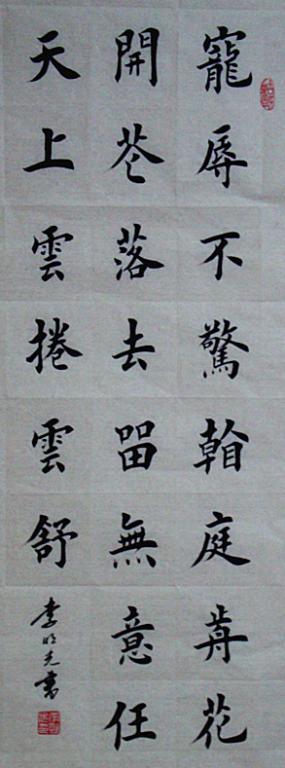 寵辱不驚看庭前花
開芲落去留無意任
天上雲捲雲舒
李明光書